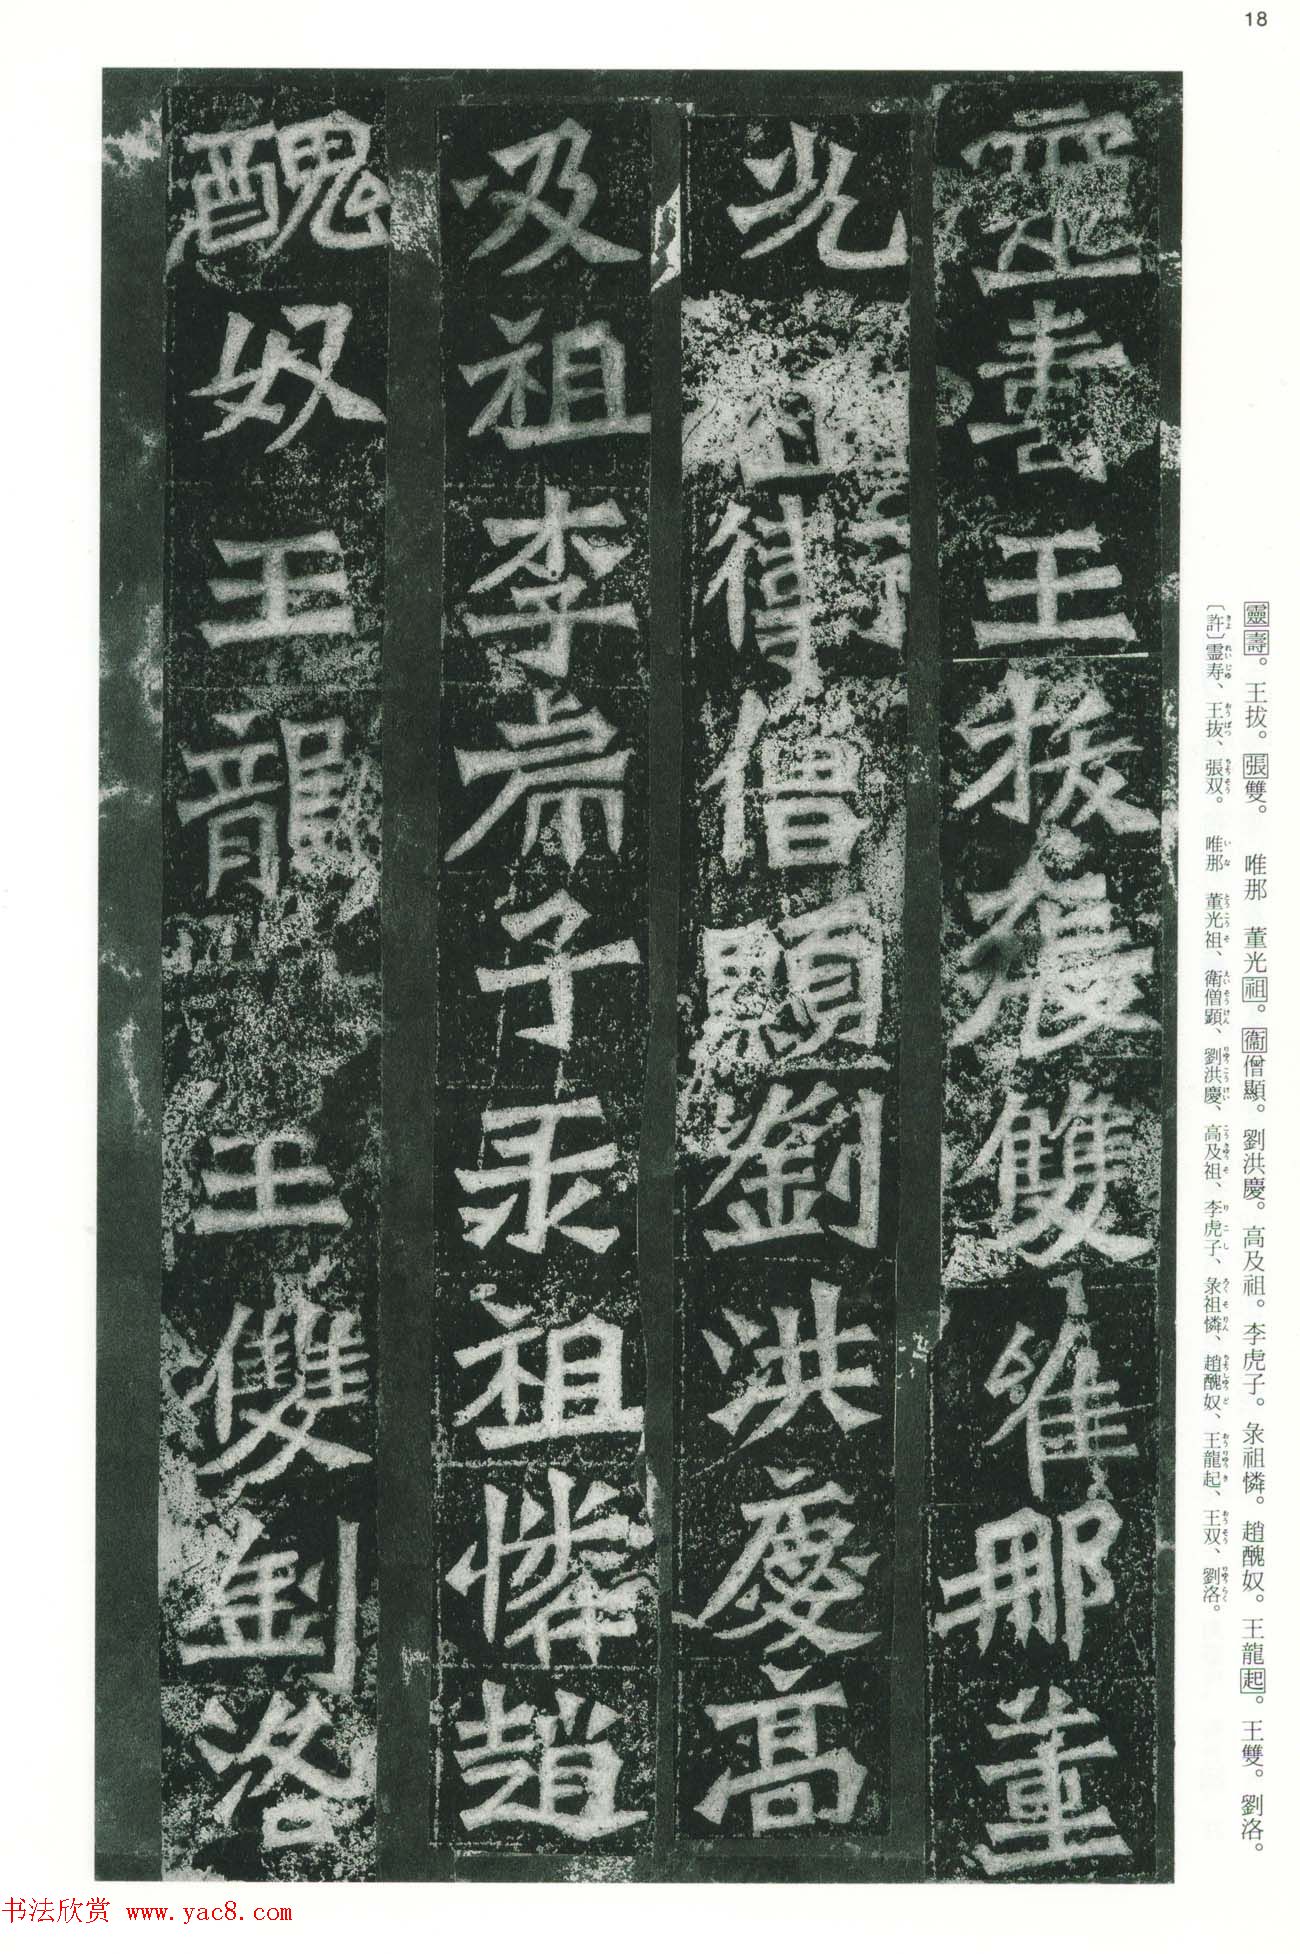 18
靈壽。王拔。張雙。　唯那　董光祖。衞僧顯。劉洪慶。高及祖。李虎子。彔祖憐。趙醜奴。王龍起。王雙。劉洛。
〔許〕霊寿、王抜、張双。　唯那　董光祖、衛僧顕、劉洪慶、高及祖、李虎子、彔祖憐、趙醜奴、王龍起、王双、劉洛。
靈壽王拔張雙唯那董
光祖衛僧顯劉洪慶高
及祖李虎子彔祖憐趙
醜奴王龍王雙劉洛
书法欣赏 www.yac8.com